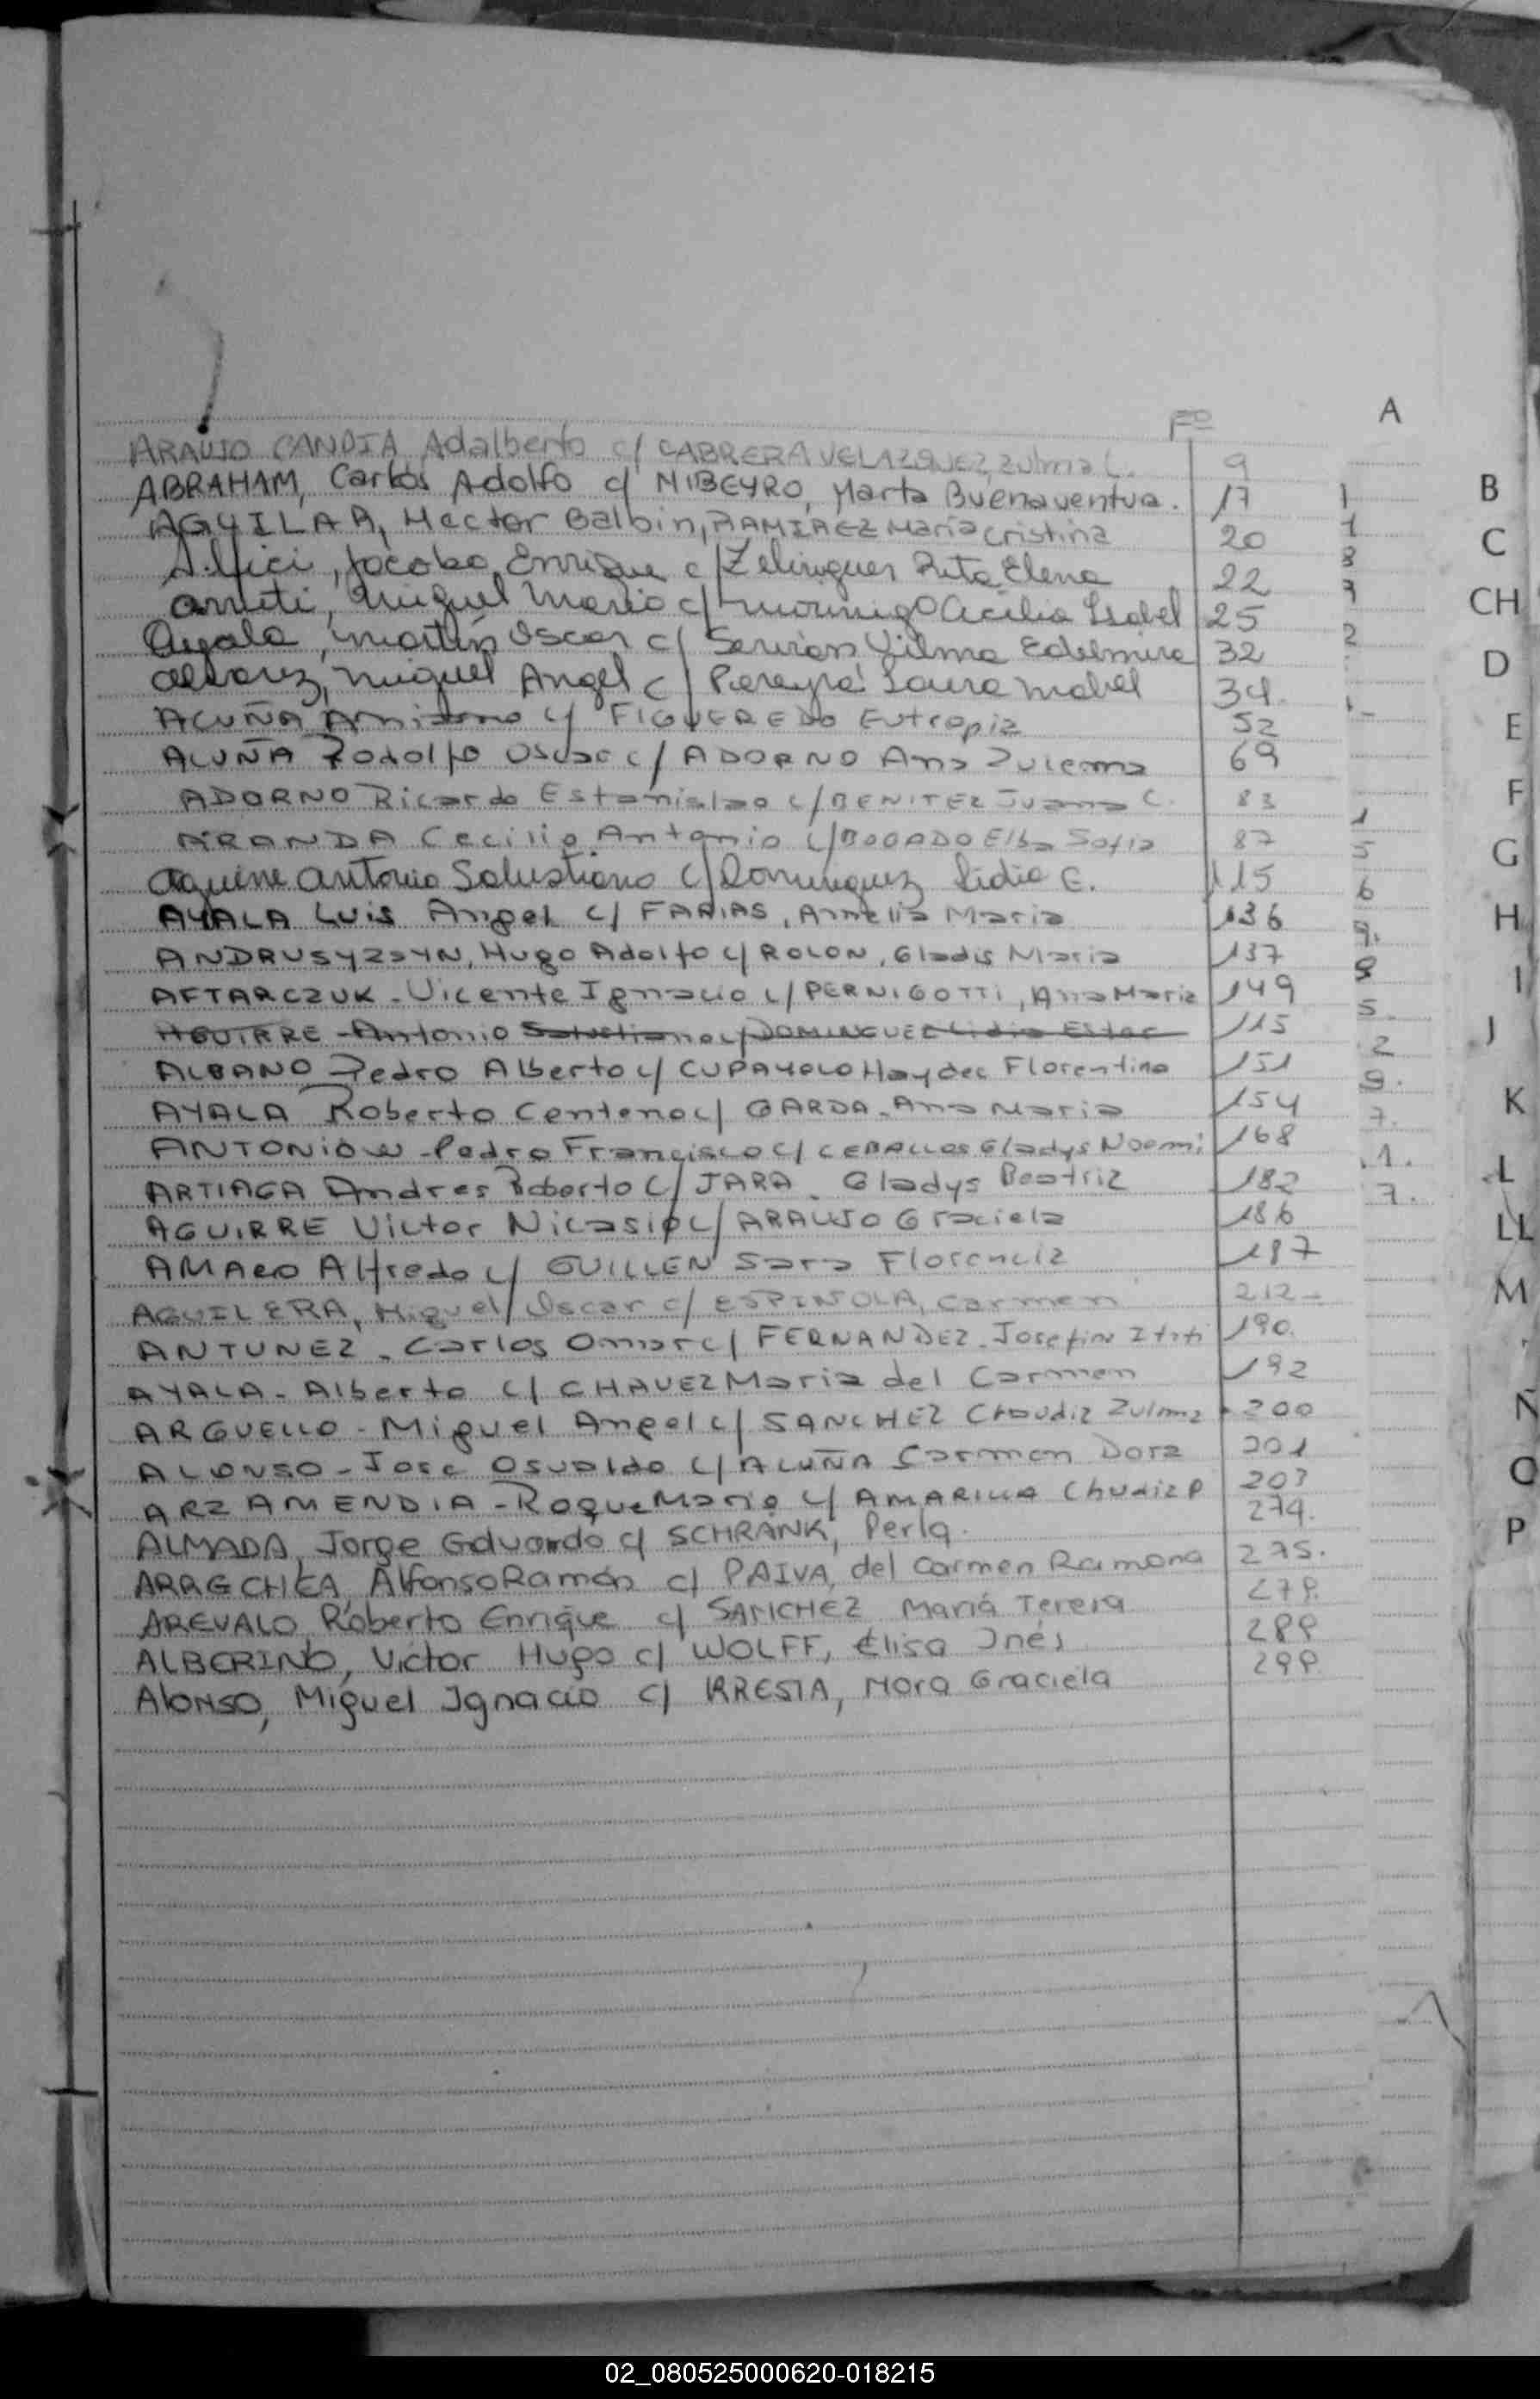 Fº
A
ARAUJO CANDIA Adalberto c/ CABRERA VELAZQUEZ, Zulma C. 9
ABRAHAM, Carlos Adolfo c/ NIBEYRO, Marta Buenaventua. 17
AGUILAR, Hector Balbin, RAMIREZ Maria Cristina 20
Jacobo Enrique c/ Rita Elena 22
Miguel Mario c/ Cecilia Isabel 25
Ayala, Martín Oscar c/ Servian Vilma Edelmira 32
Alvarez, Miguel Angel c/ Pereyra Laura Mabel 34.
ACUÑA c/ FIGUEREDO Eutropia 52
ACUÑA Rodolfo Oscar c/ ADORNO Ana Zulema 69
ADORNO Ricardo Estanislao c/ BENITEZ Juana C. 83
ARANDA Cecilio Antonio c/ BOGADO Elba Sofia 87
Antonio Salustiano c/ Dominguez Lidia E. 115
AYALA Luis Angel c/ FARIAS, Amelia Maria 136
Hugo Adolfo c/ ROLON, Gladis Maria 137
AFTARCZUK - Vicente Ignacio c/ PERNIGOTTI, Ana Maria 149
AGUIRRE - Antonio Salustiano c/ DOMINGUEZ Lidia Ester 115
ALBANO Pedro Alberto c/ CUPAYOLO Haydee Florentina 151
AYALA Roberto Centeno c/ GARDA - Ana Maria 154
ANTONIOW - Pedro Francisco c/ CEBALLOS Gladys Noemi 168
ARTIAGA Andres Roberto c/ JARA - Gladys Beatriz 182
AGUIRRE Victor Nicasio c/ ARAUJO Graciela 186
AMARO Alfredo c/ GUILLEN Sara Florencia 187
AGUILERA, Miguel Oscar c/ ESPINOLA, Carmen 212-
ANTUNEZ - Carlos Omar c/ FERNANDEZ - Josefina Itati 190.
AYALA - Alberto c/ CHAVEZ Maria del Carmen 192
ARGUELLO - Miguel Angel c/ SANCHEZ Claudia Zulma 200
ALONSO - Jose Osvaldo c/ ACUÑA Carmen Dora 201
ARZAMENDIA - Roque Mario c/ AMARILLA Claudia P 203
ALMADA, Jorge Eduardo c/ SCHRANK, Perla. 274.
ARRECHEA, Alfonso Ramón c/ PAIVA, del Carmen Ramona 275.
AREVALO, Roberto Enrique c/ SANCHEZ María Teresa
ALBERINO, Victor Hugo c/ WOLFF, Elisa Inés
Alonso, Miguel Ignacio c/ Nora Graciela
B
C
CH
D
E
F
G
H
I
J
K
L
LL
M
Ñ
O
P
02_080525000620-018215